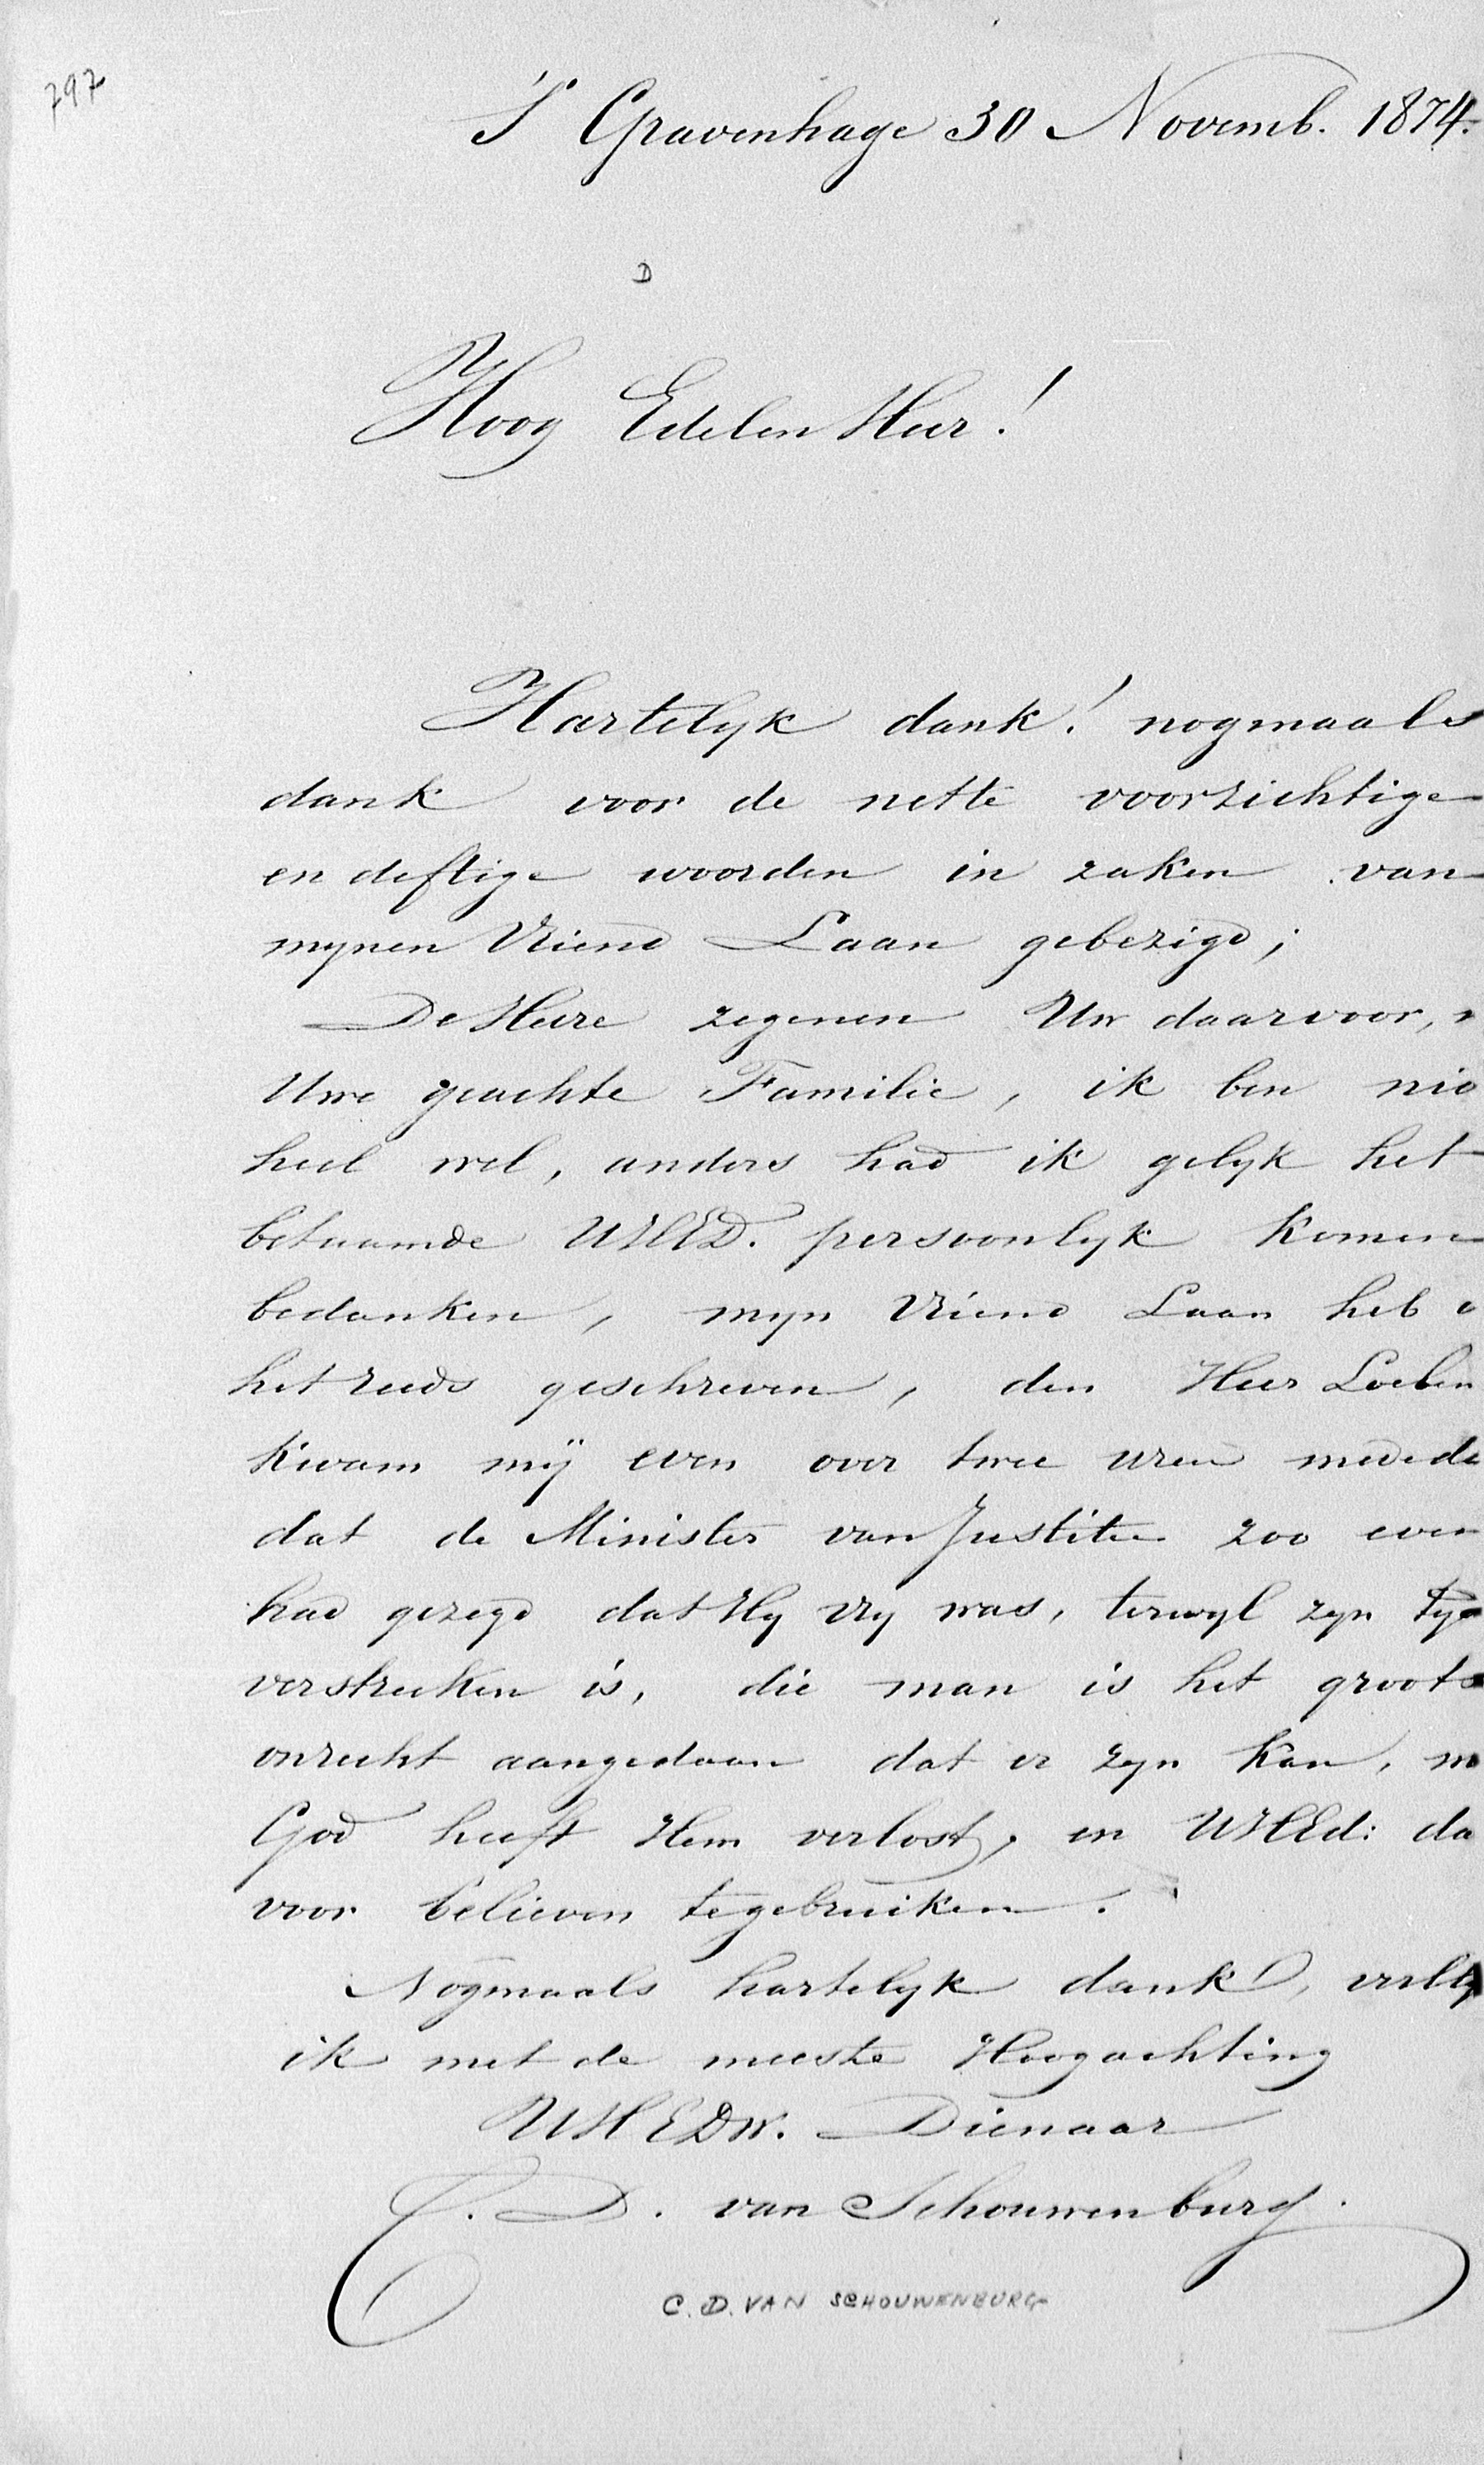 797
'S Gravenhage 30 Novemb. 1874.
D
Hoog Edelen Heer!
Hartelyk dank! nogmaals
dank voor de nette voorzichtige
en deftige woorden in zaken van
mynen Vriend Laan gebezigd;
De Heere zegenen Uw daarvoor,
Uwe geachte Familie, ik ben nie
heel wel, anders had ik gelyk het
betaamde UHED. persoonlyk komen
bedanken, myn Vriend Laan heb
het reeds geschreven, den Heer Loeben
kwam mÿ even over twee uren medede
dat de Minister van Justitie zoo even
had gezegd dat Hy vry was, terwyl zyn tyd
verstreeken is, die man is het groots
onrecht aangedaan dat er zyn kan, m
God heeft Hem verlost, en UHEd: da
voor believen te gebruiken.
Nogmaals hartelyk dank,
ik met de meeste Hoogachting
UHEDW. Dienaar
C. D. van Schouwenburg.
C. D. VAN SCHOUWENBURG